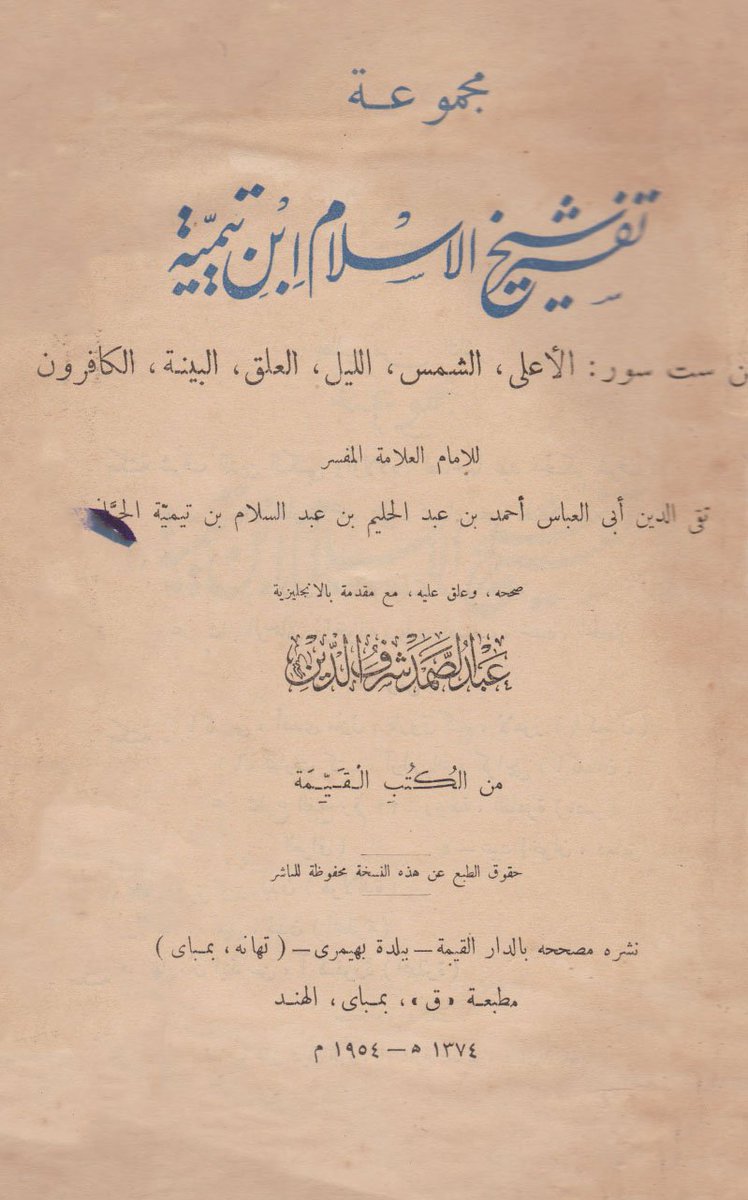 مجموعة
تفسير شيخ الاسلام ابن تيميّة
ست سور: الأعلى، الشمس، الليل، العلق، البينة، الكافرون
للإمام العلامة المفسر
تقى الدين أبى العباس أحمد بن عبد الحليم بن عبد السلام بن تيميّة
صححه، وعلق عليه، مع مقدمة بالانجليزية
عبد الصمد شرف الدين
من الكُتُبِ القَيِّمَة
حقوق الطبع عن هذه النسخة محفوظة للناشر
نشره مصححه بالدار القيمة — ببلدة بهيمرى — ( تهانه، بمباى )
مطبعة «ق»، بمباى، الهند
١٣٧٤ ھ — ١٩٥٤ م